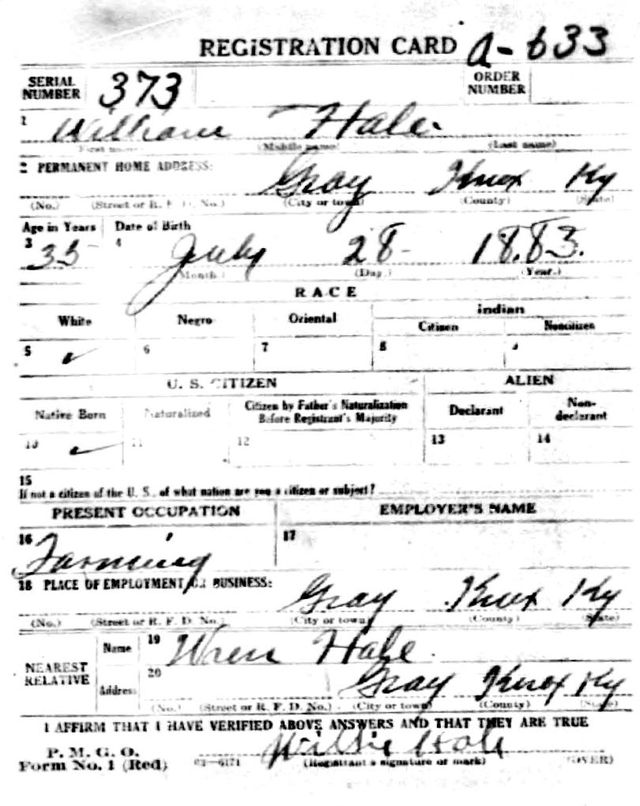 REGISTRATION CARD A-633
SERIAL NUMBER 373 ORDER NUMBER
1 William Hale.
(First name) (Middle name) (Last name)
2 PERMANENT HOME ADDRESS: Gray Knox Ky
(No.) (Street or R. F. D. No.) (City or town) (County) (State)
Age in Years Date of Birth
3 35 4 July 28 1883.
(Month.) (Day.) (Year.)
RACE
White Negro Oriental Indian
Citizen Noncitizen
5 ✓ 6 7 8
U. S. CITIZEN ALIEN
Native Born Naturalized Citizen by Father's Naturalization Before Registrant's Majority Declarant Non-declarant
10 ✓ 11 12 13 14
15
If not a citizen of the U. S., of what nation are you a citizen or subject?
PRESENT OCCUPATION EMPLOYER'S NAME
16 Farming 17
18 PLACE OF EMPLOYMENT OR BUSINESS: Gray Knox Ky
(No.) (Street or R. F. D. No.) (City or town) (County) (State)
NEAREST RELATIVE
Name 19 Wren Hale.
Address 20 Gray Knox Ky
(No.) (Street or R. F. D. No.) (City or town) (County) (State)
I AFFIRM THAT I HAVE VERIFIED ABOVE ANSWERS AND THAT THEY ARE TRUE
P. M. G. O.
Form No. 1 (Red) 03-6171 Willie Hale
(Registrant's signature or mark) (OVER)